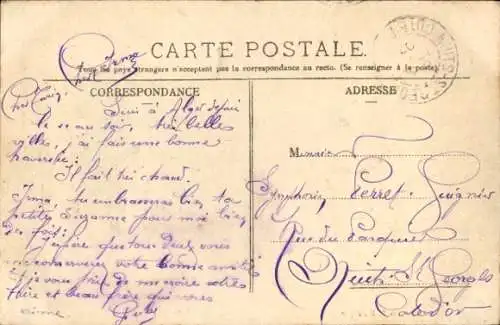 CARTE POSTALE
Tous les pays étrangers n'acceptent pas la correspondance au recto. (Se renseigner à la poste)
CORRESPONDANCE
ADRESSE
Irma
Suis à Alger depuis
le 11 au soir, très belles
villes, j'ai fais une bonne
traversée.
Il fait très chaud.
Irma, tu embrasseras bien ta
petite Suzanne pour moi bien
des fois.
J'espère que tous deux vous
conserverez votre bonne
et je vous prie de me croire votre
frère et beau frère qui vous
aime.
Monsieur
Symphorien Perret
Rue du
Nuits St Georges
Côte d'or